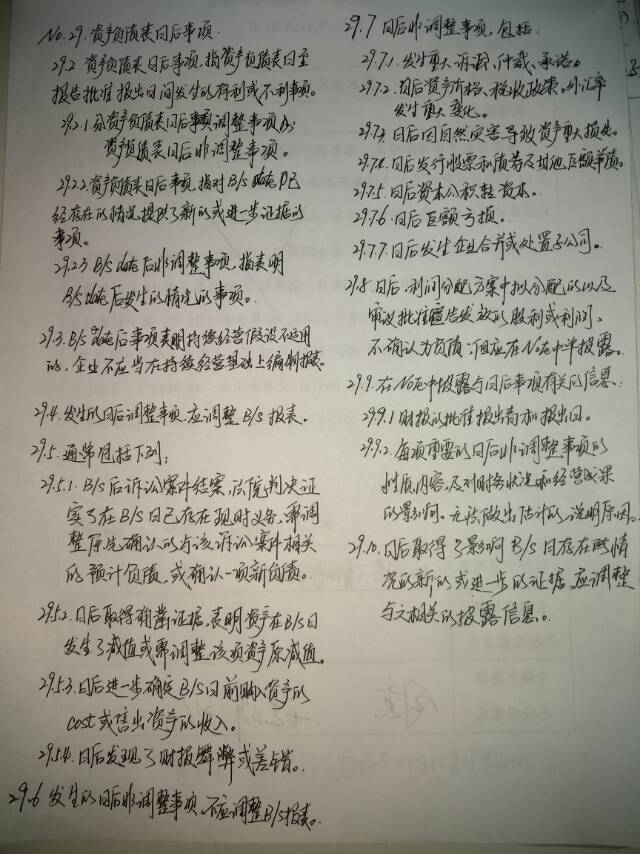 No.29.资产负债表日后事项.
29.2 资产负债表日后事项,指资产负债表日至
报告批准报出日间发生的有利或不利事项。
29.2.1 分资产负债表日后事项调整事项&
资产负债表日后非调整事项。
29.2.2.资产负债表日后事项,指对B/S date 日已
经存在的情况提供了新的或进一步证据的
事项。
29.2.3 B/S date 后非调整事项,指表明
B/S date 后发生的情况的事项。
29.3.B/S date 后事项表明持续经营假设不适用
的,企业不应当在持续经营基础上编制报表。
29.4.发生的日后调整事项,应调整B/S报表。
29.5.通常包括下列:
29.5.1.B/S后诉讼案件结案,法院判决证
实了在B/S日已存在现时义务,需调
整原先确认的与该诉讼案件相关
的预计负债,或确认一项新负债。
29.5.2.日后取得确凿证据,表明资产在B/S日
发生了减值或需调整该项资产原减值。
29.5.3.日后进一步确定B/S日前购入资产的
cost或售出资产的收入。
29.5.4.日后发现了财报舞弊或差错。
29.6 发生的日后非调整事项,不应调整B/S报表。
29.7 日后非调整事项,包括:
29.7.1.发生重大诉讼、仲裁、承诺。
29.7.2.日后资产价格、税收政策、外汇率
发生重大变化。
29.7.3.日后因自然灾害导致资产重大损失。
29.7.4.日后发行股票和债券及其他巨额举债。
29.7.5.日后资本公积转资本。
29.7.6.日后巨额亏损。
29.7.7.日后发生企业合并或处置子公司。
29.8.日后,利润分配方案中拟分配的以及
审议批准宣告发放的股利或利润,
不确认为负债,但应在Note中单披露。
29.9.在Note中披露与日后事项有关的信息:
29.9.1 财报的批准报出者和报出日。
29.9.2.每项重要的日后非调整事项的
性质,内容,及对财务状况和经营成果
的影响。无法做出估计的,说明原因。
29.10.日后取得了影响B/S日存在的情
况的新的或进一步的证据,应调整
与之相关的披露信息。